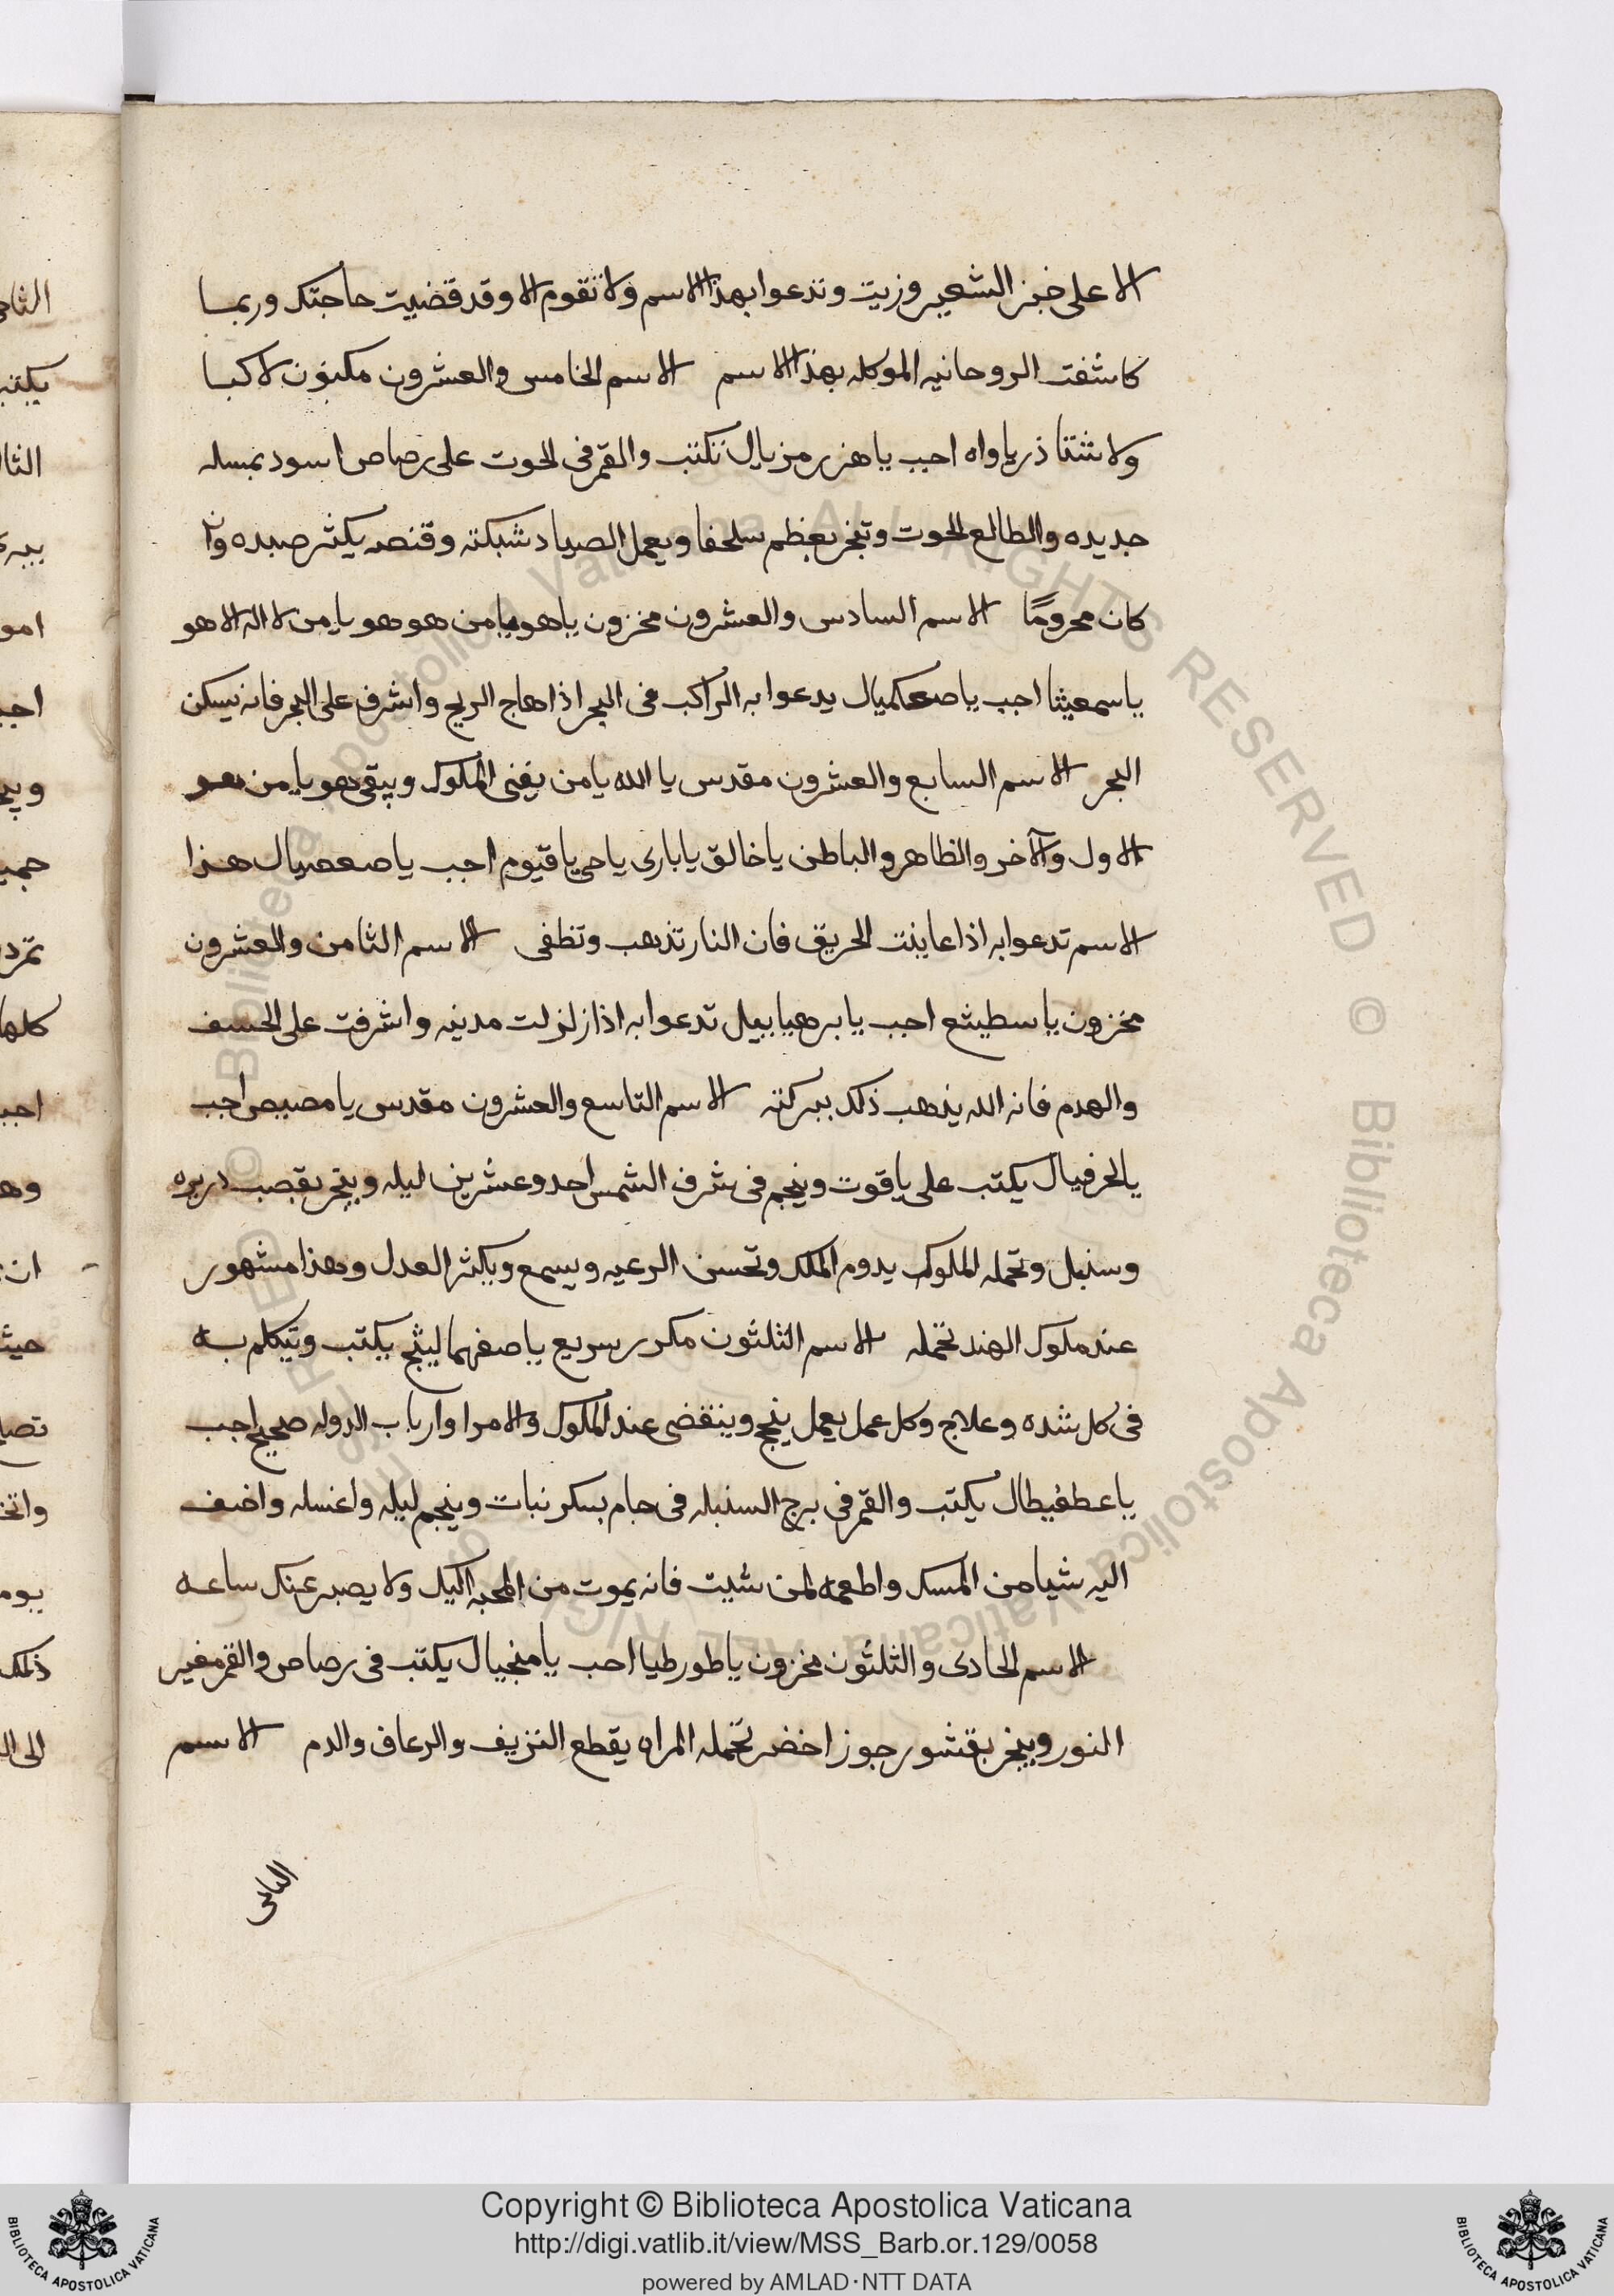 الا على خبز الشعير وزيت وتدعوا بهذا الاسم ولا تقوم الا وقد قضيت حاجتك وربما
كاشفت الروحانيه الموكله بهذا الاسم الاسم الخامس والعشرون مكنون لاكبا
ولا شتتا ذرياواه اجب يا هزرمزيال تكتب والقمر فى الحوت على رصاص اسود بمسله
جديده والطالع الحوت وتبخر بعظم سلحفا ويعمل الصياد شبكته وقنصه يكثر صيده وان
كان محرومًا الاسم السادس والعشرون مخزون ياهو يامن هو هو يا من لا اله الا هو
ياسمعيثا اجب يا صعكميال يدعوا به الراكب فى البحر اذا هاج الريح واشرف على البحر فانه يسكن
البحر الاسم السابع والعشرون مقدس يا الله يا من يفنى الملوك ويبقى هو يا من هو
الاول والآخر والظاهر والباطن يا خالق يا بارى يا حى يا قيوم اجب يا صعصيال هذا
الاسم تدعوا به اذا عاينت الحريق فان النار تذهب وتطفى الاسم الثامن والعشرون
مخزون يا سطيشع اجب يا برهيابيل تدعوا به اذا زلزلت مدينه واشرفت على الخسف
والهدم فانه الله يذهب ذلك ببركته الاسم التاسع والعشرون مقدس يا مصيص اجب
يالحرفيال يكتب على ياقوت وينجم فى شرف الشمس احد وعشرين ليله ويبخر بقصب دريره
وسنبل وتحمله الملوك يدوم الملك وتحسن الرعيه ويسمع ويكثر العدل وهذا مشهور
عند ملوك الهند تحمله الاسم الثلثون مكرر سريع ياصفهماليثج يكتب وتيكلم به
فى كل شده وعلاج وكل عمل يعمل ينجح وينقضى عند الملوك والامرا وارباب الدوله صحيح اجب
ياعطفيطال يكتب والقمر فى برج السنبله فى جام بسكر نبات وينجم ليله واغسله واضف
اليه شيا من المسك واطعمه لمن شيت فانه يموت من المحبه اليك ولا يصبر عنك ساعه
الاسم الحادى والثلثون مخزون يا طورطيا اجب يا منجيال يكتب فى رصاص والقمر فى
النور ويبخر بقشور جوز اخضر تحمله المراه يقطع النزيف والرعاف والدم الاسم
الثانى
Copyright © Biblioteca Apostolica Vaticana
http://digi.vatlib.it/view/MSS_Barb.or.129/0058
powered by AMLAD·NTT DATA